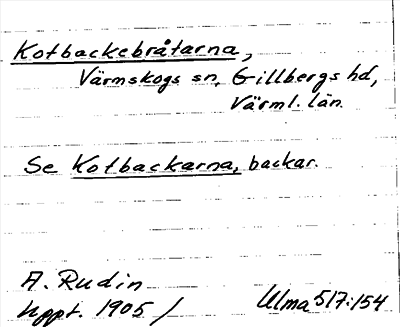 Kotbackebråtarna,
Värmskogs sn, Gillbergs hd,
Värml. län.
Se Kotbackarna, backar.
A. Rudin
Uppt. 1905 /
Ulma 517:154